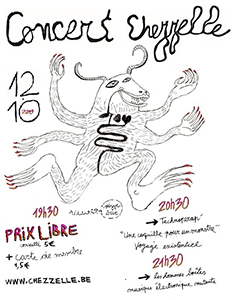 Concert Chezzelle
12
10
19h30
PRIX LIBRE
conseillé 5€
+ carte de membre
1,5€
WWW.CHEZZELLE.BE
20h30
"Une coquille pour un monstre"
Voyage existentiel
21h30
→ les hommes boîtes
musique électronique mutante